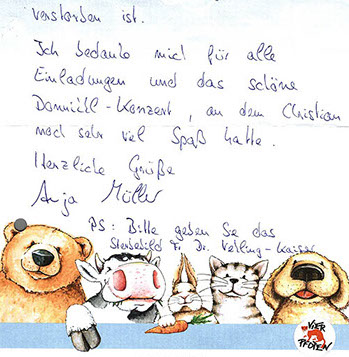 verstorben ist.
Ich bedanke mich für alle
Einladungen und das schöne
Konzert, an dem Christian
noch sehr viel Spaß hatte.
Herzliche Grüße
Anja Müller
PS: Bitte geben Sie das
Sterbebild Fr. Dr. Kelling-Kaiser
VIER
PFOTEN